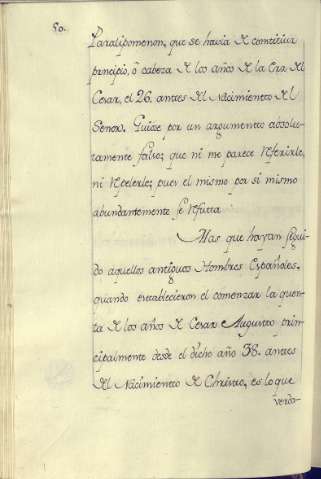 50.
Paralipomenon, que se havia de constituir
principio, ò cabeza de los años de la Era del
Cesar, el 26. antes del Nacimiento del
Señor. Guiase por un argumento absolu-
tamente falso; que ni me parece referirle,
ni repelerle; pues el mismo por si mismo
abundantemente se refuta.
Mas que hayan segui-
do aquellos antiguos Hombres Españoles,
quando establecieron el comenzar la quen-
ta de los años de Cesar Augusto prin-
cipalmente desde el dicho año 38. antes
del Nacimiento de Christo, es lo que
verda-